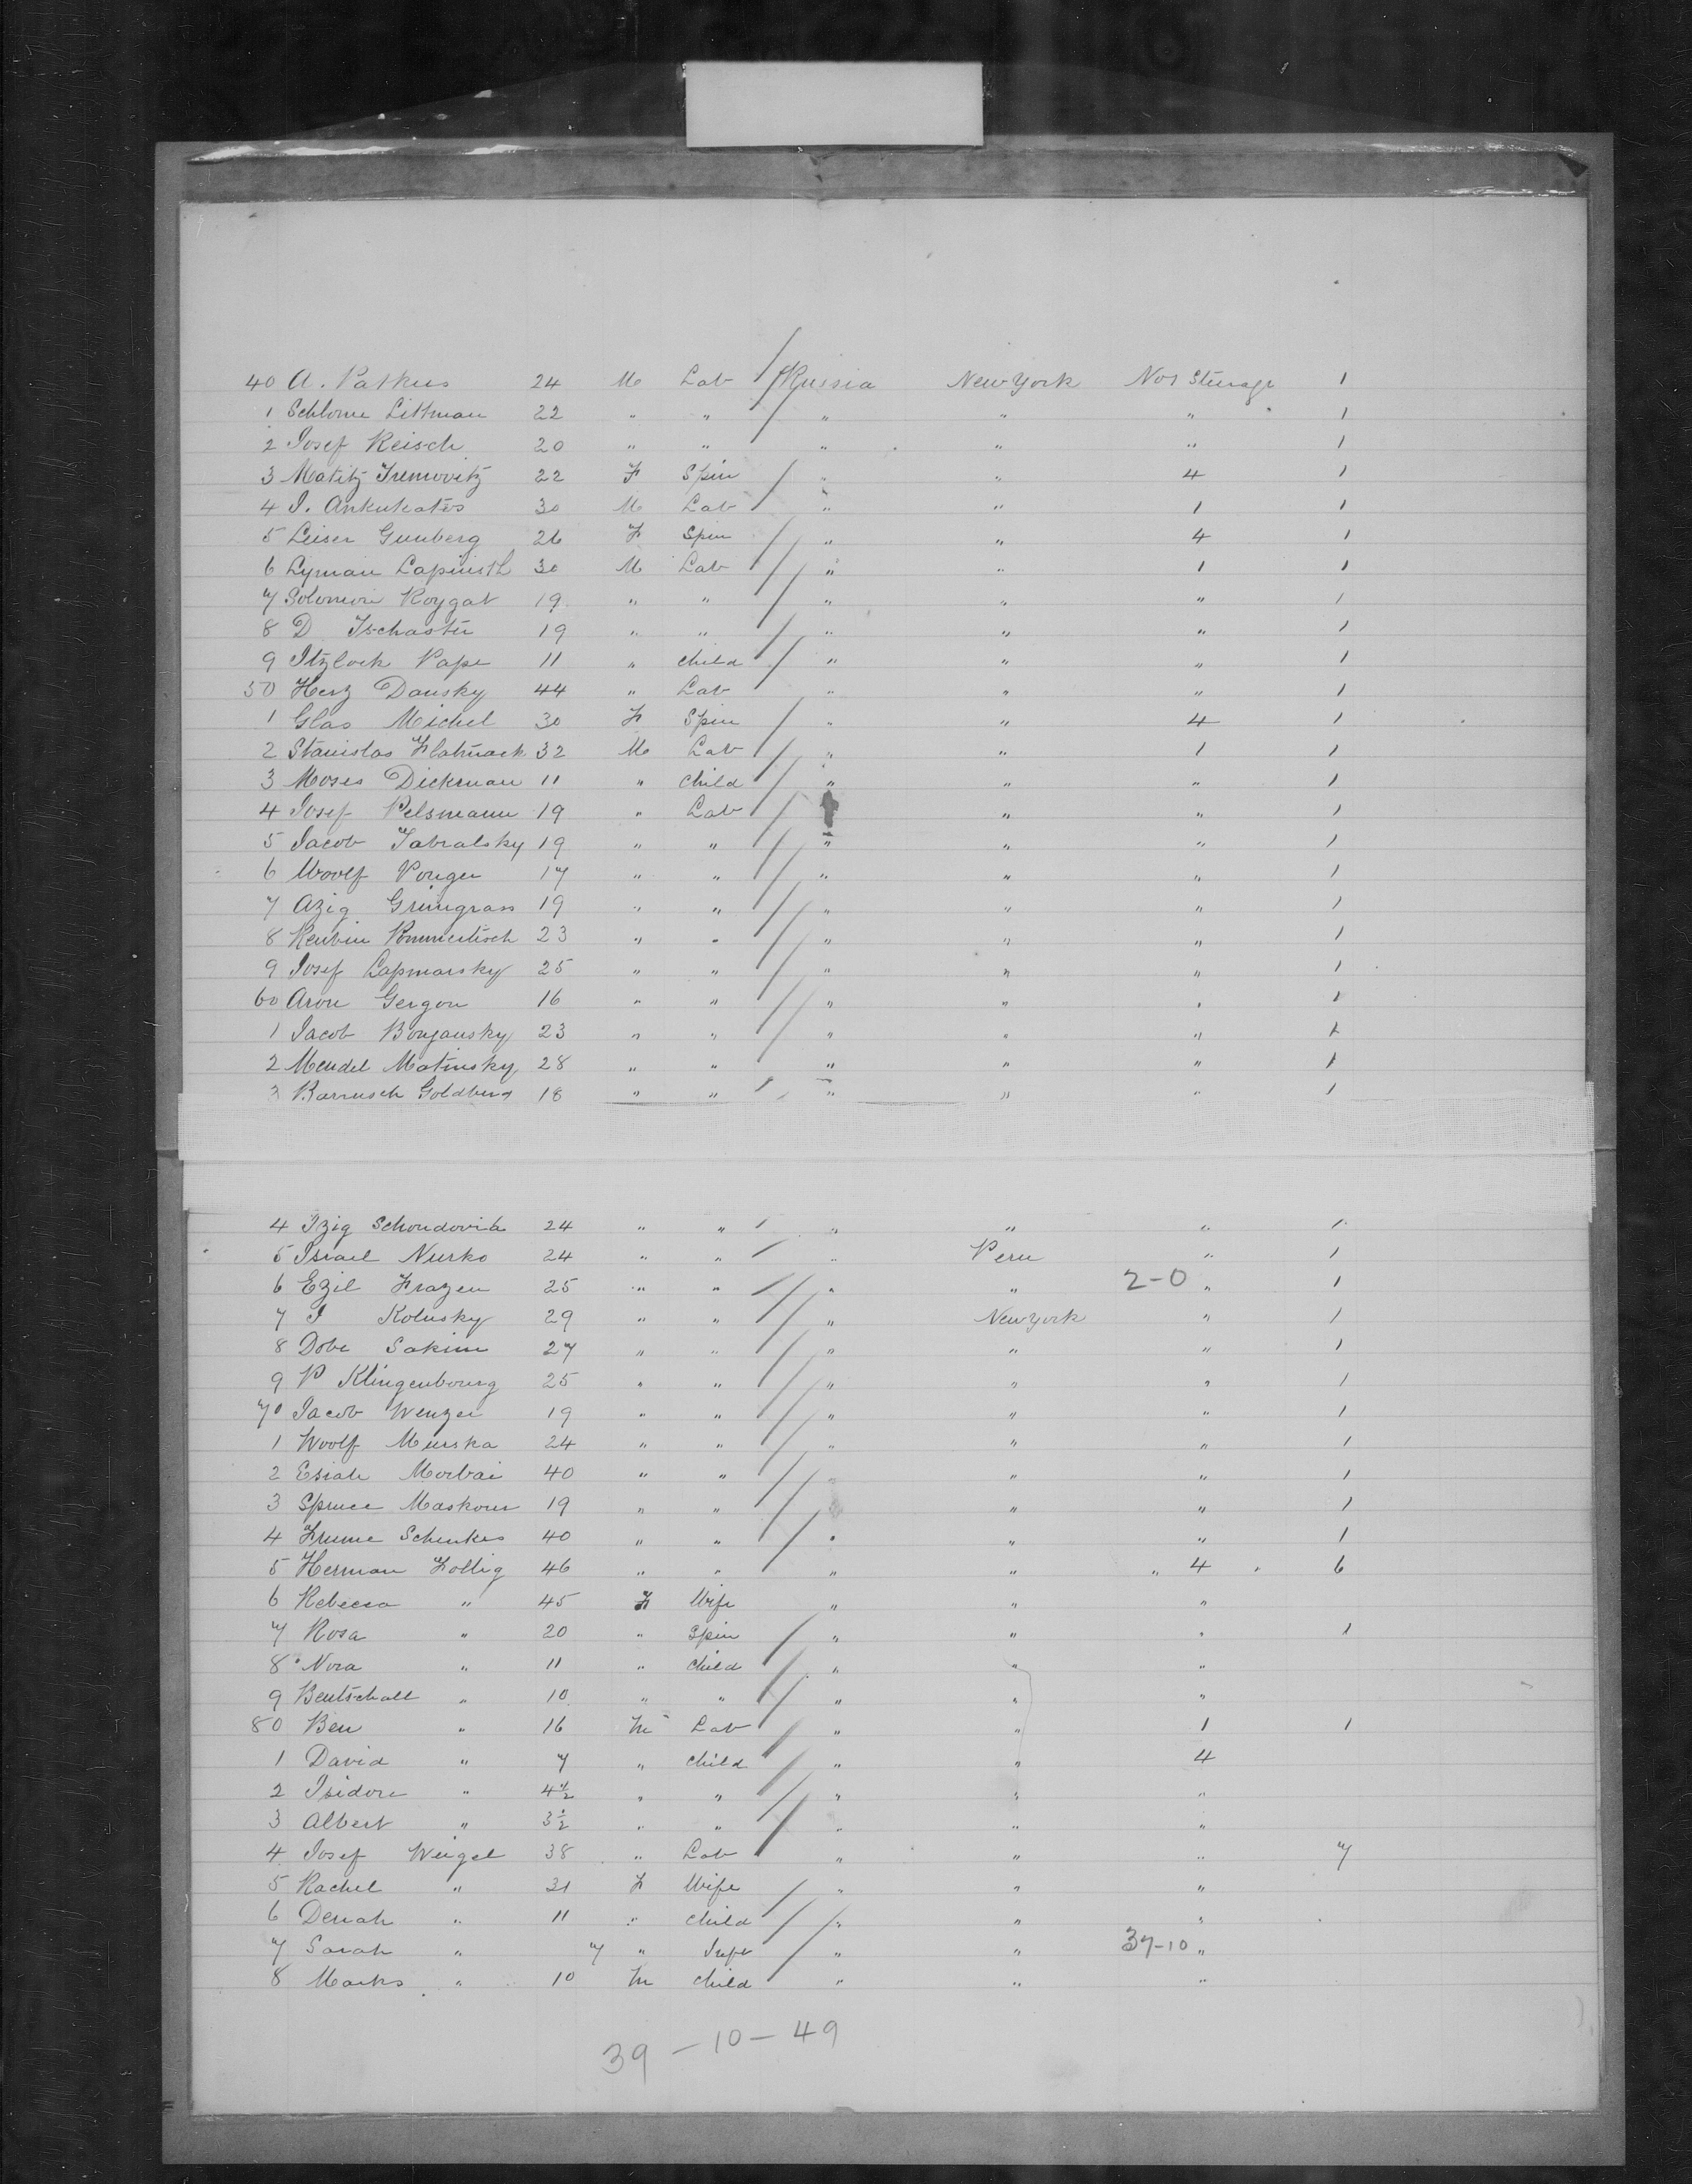 40 A. Patkus 24 M Lab Russia New York No 1 Steerage 1
1 Schlome Littman 22 " " " " " 1
2 Josef Reisch 20 " " " " " 1
3 Matitz 22 F Spin " " 4 1
4 I. Ankukates 30 M Lab " " 1 1
5 Leiser Gunberg 26 F Spin " " 4 1
6 Lyman 30 M Lab " " 1 1
7 Solomon Roygat 19 " " " " " 1
8 D Tschaster 19 " " " " " 1
9 Itzlock Pape 11 " Child " " " 1
50 Herz Dansky 44 " Lab " " " 1
1 Glas Michel 30 F Spin " " 4 1
2 Stanislas 32 M Lab " " 1 1
3 Moses Dickman 11 " Child " " " 1
4 Josef Pelsmann 19 " Lab " " 1
5 Jacob Tabralsky 19 " " " " " 1
6 Woolf Ponger 17 " " " " " 1
7 Azig Grüngrass 19 " " " " " 1
8 Reubin 23 " " " " " 1
9 Josef Lapmarsky 25 " " " " " 1
60 Aron Gergon 16 " " " " " 1
1 Jacob 23 " " " " " 1
2 Mendel Matinsky 28 " " " " " 1
3 Barrusch Goldberg 18 " " " " " 1
4 Izig 24 " " " " " 1
5 Israel Nurko 24 " " " Peru " 1
6 Ezil Frazen 25 " " " " 2-0 " 1
7 I Kolusky 29 " " " New York " 1
8 Dobe Sakim 27 " " " " " 1
9 P Klingenbourg 25 " " " " " 1
70 Jacob Wenzer 19 " " " " " 1
1 Woolf Murska 24 " " " " " 1
2 Esiah Morbai 40 " " " " " 1
3 Spruce Maskour 19 " " " " 1
4 Frume Schenkes 40 " " " " " 1
5 Herman Zollig 46 " " " " " 4 " 6
6 Rebecca " 45 F Wife " " "
7 Rosa " 20 " Spin " " " 1
8 Nora " 11 " Child " " "
9 Beutschall " 10 " " " " "
80 Ben " 16 M Lab " " 1 1
1 David " 7 " Child " " 4
2 Isidore " 4½ " " " " "
3 Albert " 3½ " " " " "
4 Josef Weigel 38 " Lab " " " 7
5 Rachel " 31 F Wife " " "
6 Denah " 11 " Child " " "
7 Sarah " 7 " Inft " " 37-10 "
8 Marks " 10 M Child " " "
39-10-49